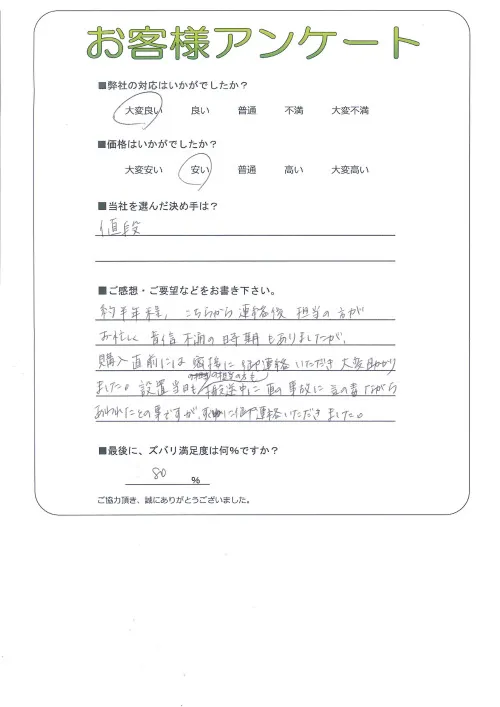 お客様アンケート
■弊社の対応はいかがでしたか？
大変良い 良い 普通 不満 大変不満
■価格はいかがでしたか？
大変安い 安い 普通 高い 大変高い
■当社を選んだ決め手は？
値段
■ご感想・ご要望などをお書き下さい。
約半年程、こちらから連絡後 担当の方が
お忙しく 音信不通の時期もありましたが、
購入直前には 密接に御連絡いただき 大変助かり
ました。設置当日も 搬送中に 車の事故に
の担当の方も
あわれたとの事ですが、に御連絡いただきました。
■最後に、ズバリ満足度は何％ですか？
80 ％
ご協力頂き、誠にありがとうございました。